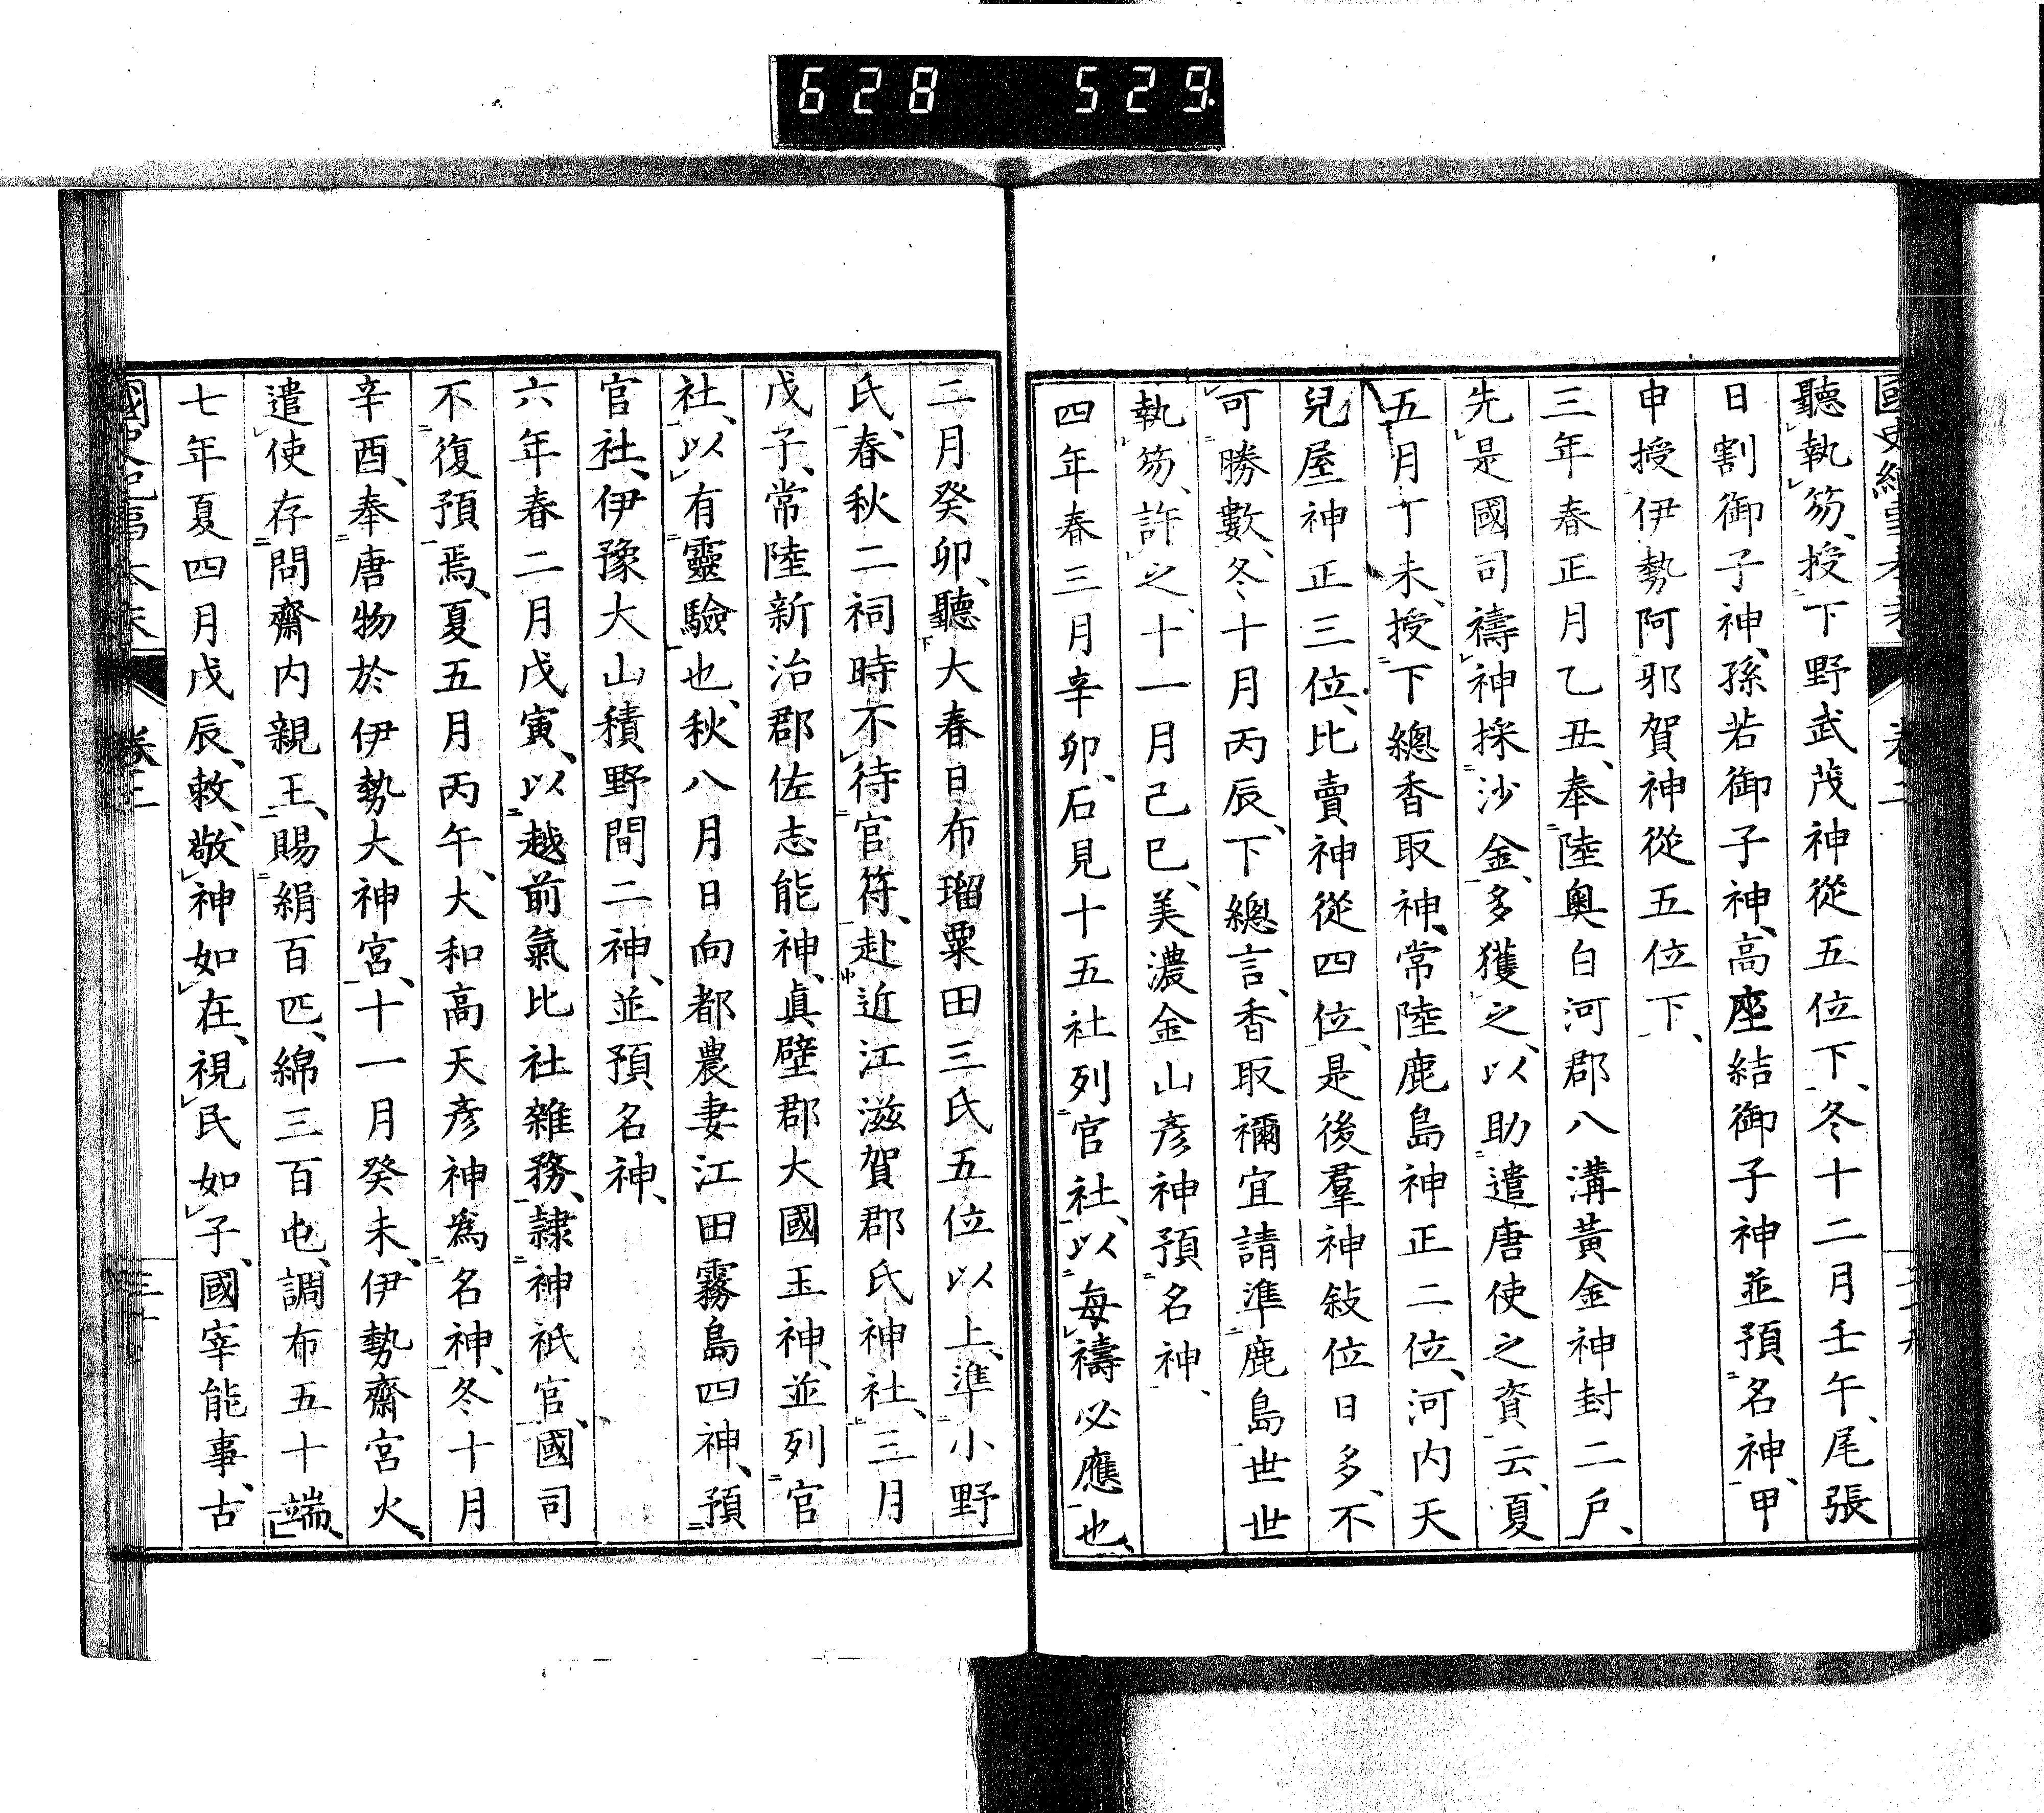 628 529
聽執笏、授下野武茂神從五位下、冬十二月壬午、尾張
日割御子神、孫若御子神、高座結御子神並預名神、甲
申授伊勢阿邪賀神從五位下、
三年春正月乙丑、奉陸奧白河郡八溝黃金神封二戶、
先是國司禱神採沙金、多獲之、以助遣唐使之資云、夏
五月丁未、授下總香取神、常陸鹿島神正二位、河內天
兒屋神正三位、比賣神從四位、是後羣神敍位日多、不
可勝數、冬十月丙辰、下總言、香取禰宜請準鹿島世世
執笏、許之、十一月己巳、美濃金山彥神預名神、
四年春三月辛卯、石見十五社列官社、以每禱必應也、
二月癸卯、聽大春日布瑠粟田三氏五位以上、準小野
氏、春秋二祠時不待官符、赴近江滋賀郡氏神社、三月
戊子、常陸新治郡佐志能神、眞壁郡大國玉神、並列官
社、以有靈驗也、秋八月日向都農妻江田霧島四神、預
官社、伊豫大山積野間二神、並預名神、
六年春二月戊寅、以越前氣比社雜務、隷神祇官、國司
不復預焉、夏五月丙午、大和高天彥神爲名神、冬十月
辛酉、奉唐物於伊勢大神宮、十一月癸未、伊勢齋宮火、
遣使存問齋內親王、賜絹百匹、綿三百屯、調布五十端、
七年夏四月戊辰、敕、敬神如在、視民如子、國宰能事、古
卷三